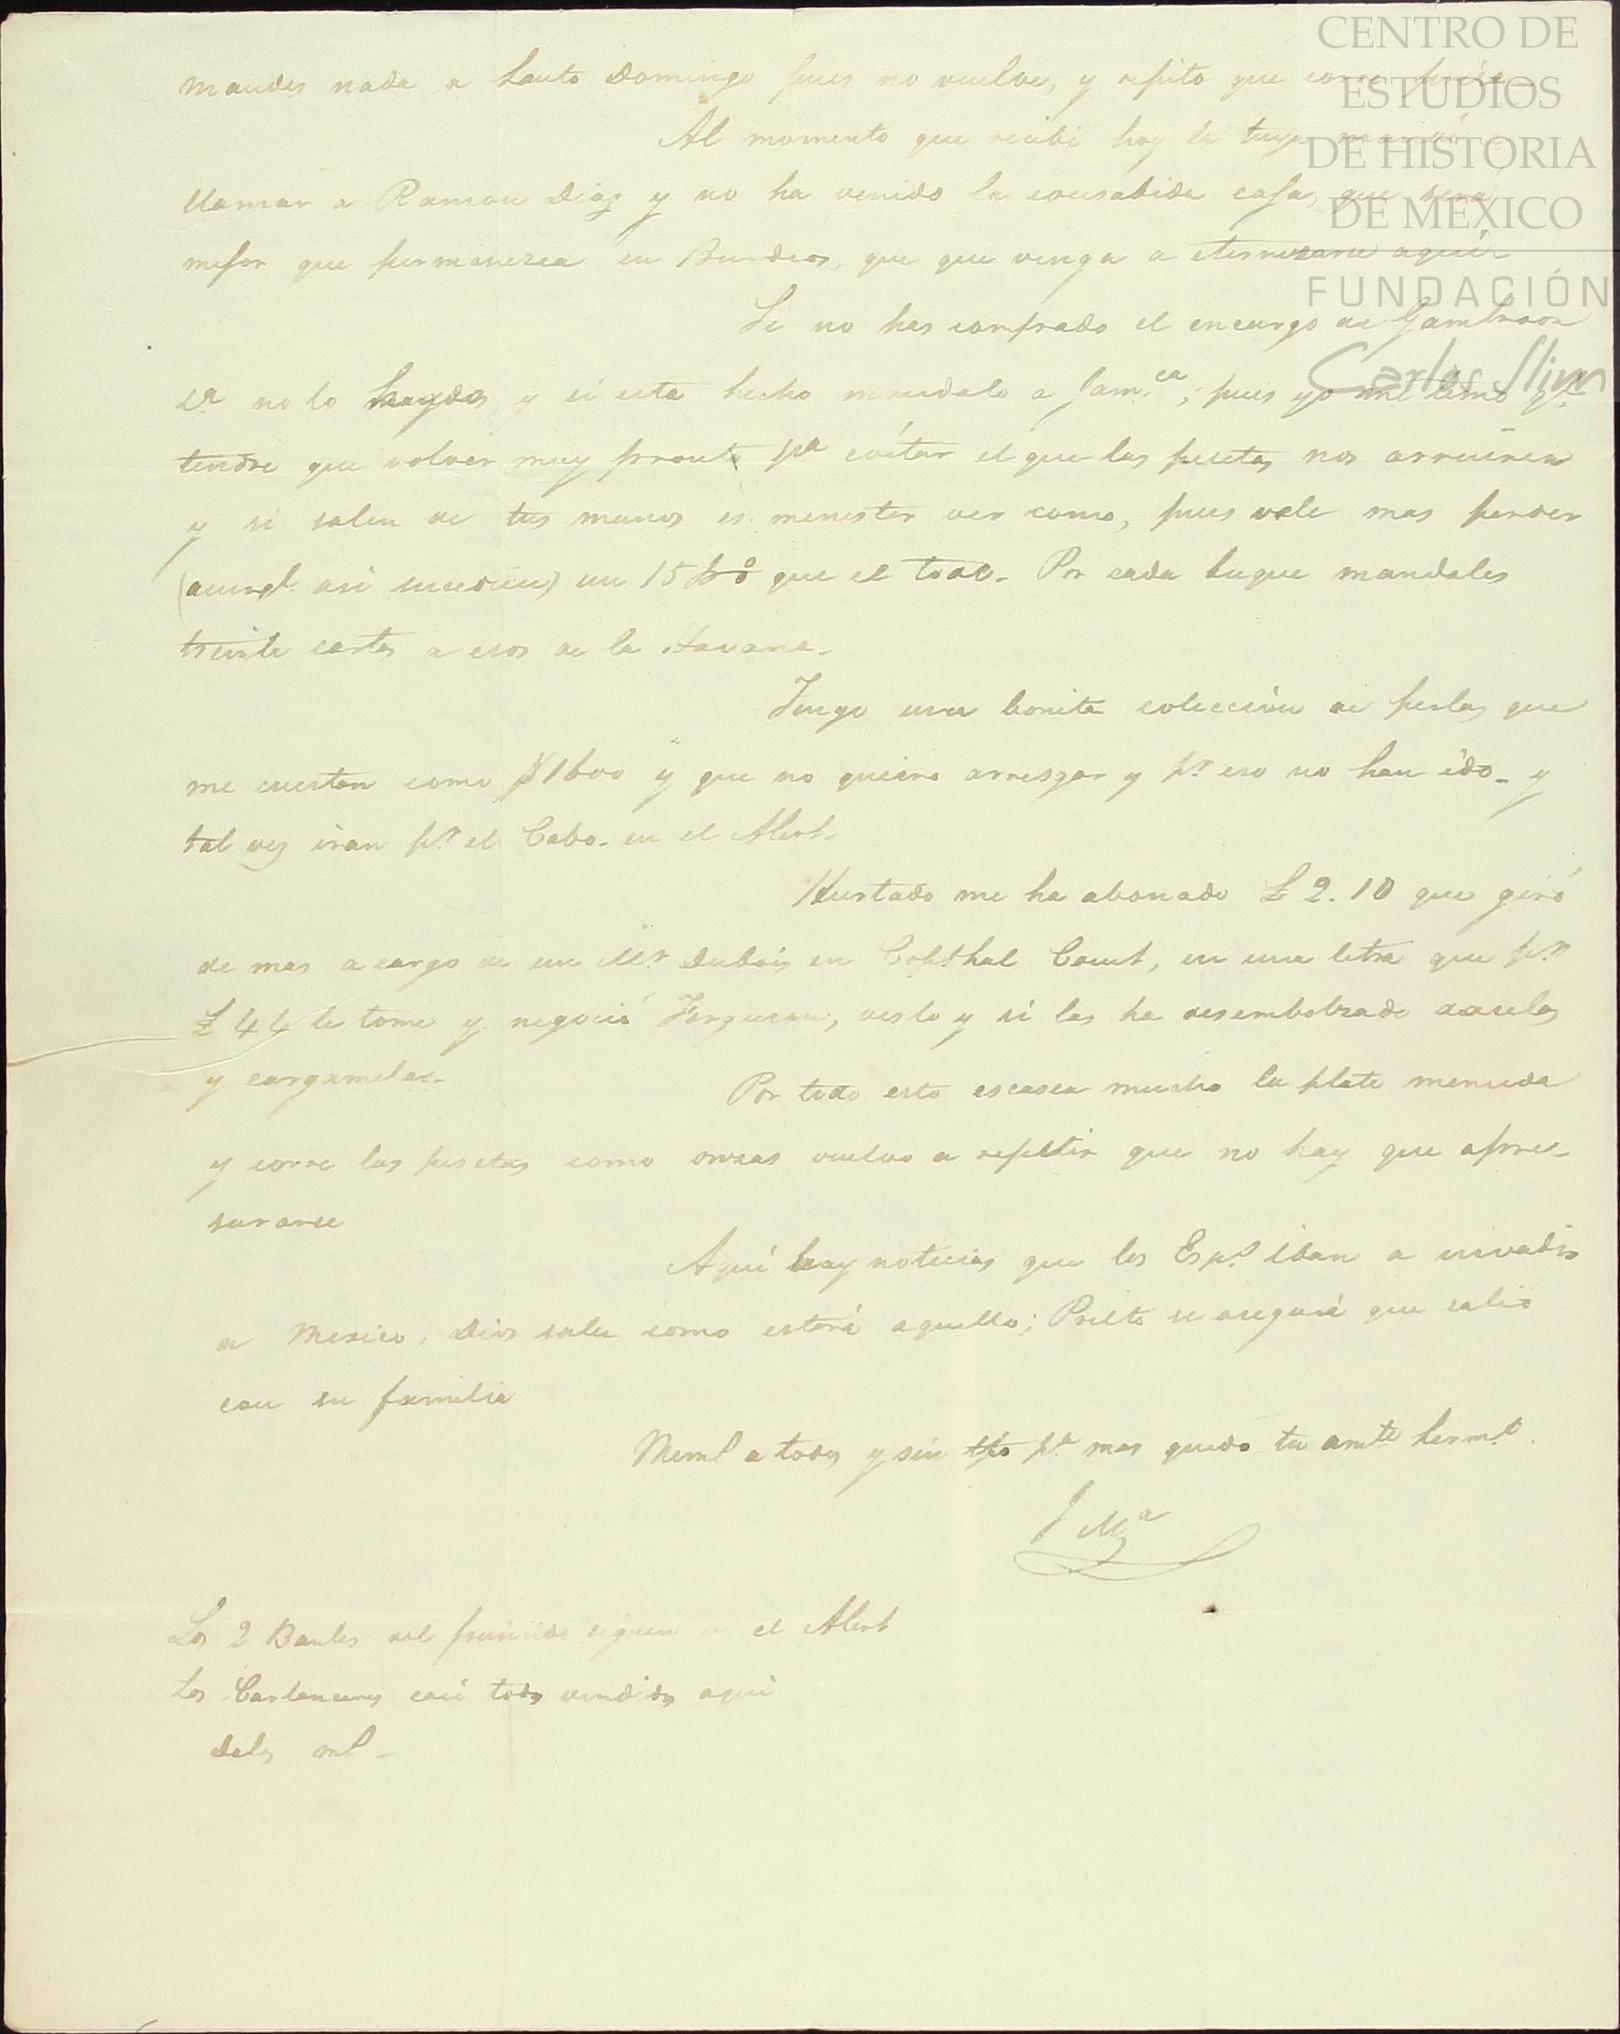 CENTRO DE
ESTUDIOS
DE HISTORIA
DE MÉXICO
FUNDACIÓN
Carlos Slim
mandes nada a Santo Domingo pues no vuelve, y repito que
Al momento que recibi hoy la tuya mandé
llamar a Ramon Diaz y no ha venido la consabida caja, que será
mejor que permanezca en Burdeos, que que venga a eternizarse aquí
Si no has comprado el encargo de
no lo hagas, y si esta hecho mandalo a Jam.ca; pues yo me temo q.e
tendre que volver muy pronto p.a evitar el que las pesetas nos arruinen
y si salen de tus manos es menester ver como, pues vale mas perder
(aunq.e asi sucediese) un 15 p%o que el todo. Por cada buque mandales
treinta cartas a esos de la Havana.
Tengo una bonita colección de perlas que
me cuestan como $1600 y que no quiero arresgar y p.r eso no han ido. y
tal vez iran p.r el Cabo. en el Alert.
Hurtado me ha abonado £ 2.10 que giró
de mas a cargo de un Mr Dubois en Copthal Court, en una letra que p.r
£ 44 le tome y negoció Ferguson, veslo y si las ha desembolzado daselas
y cargamelas.
Por todo esto escasea mucho la plata menuda
y corre las pesetas como onzas vuelvo a repetir que no hay que apre-
surarse
Aquí hay noticias que los Esp.s iban a invadir
a Mexico, Dios sabe como estará aquello; Prieto se asegura que salio
con su familia
Mem.s a todos y sin tpo p.a mas quedo tu am.te herm.o
J Ma
Los 2 Baules del siguen en el Alert
Los casi todos vendidos aqui
Dales ml.